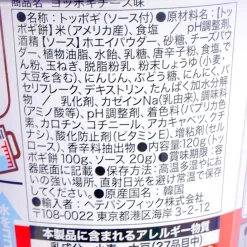 商品名 ヨッポギチーズ味
●名称:トッポギ(ソース付)●原材料名:[トッ
ポギ餅]米(アメリカ産)、食塩 / pH調整剤、
酒精 【ソース】ホエイパウダー、砂糖、チーズパウダ
ー、植物油脂、水飴、乳糖、唐辛子粉、食塩、で
ん粉、玉ねぎ、脱脂粉乳、粉末しょうゆ(小麦・
大豆を含む)、にんじん、ぶどう糖、にんにく、パ
セリフレーク、デキストリン、たんぱく加水分解
物 / 乳化剤、カゼインNa(乳由来)、調味料
(アミノ酸等)、pH調整剤、着色料(パプリ
カ、カロテン、コチニール、アカキャベツ、クチナ
シ)、酸化防止剤(ビタミンE)、増粘剤(セル
ロース)、香辛料抽出物●内容量:120g(トッ
ポギ餅100g、ソース20g)●賞味期限:容
器底面に記載●保存方法:高温多湿やにお
いの強い場所、直射日光を避けて常温で保存
してください●原産国名:韓国
●輸入者:ヘイパシフィック株式会社
〒108-0022 東京都港区海岸3-2-12
本製品に含まれるアレルギー物質
乳成分・小麦・大豆(27品目中)